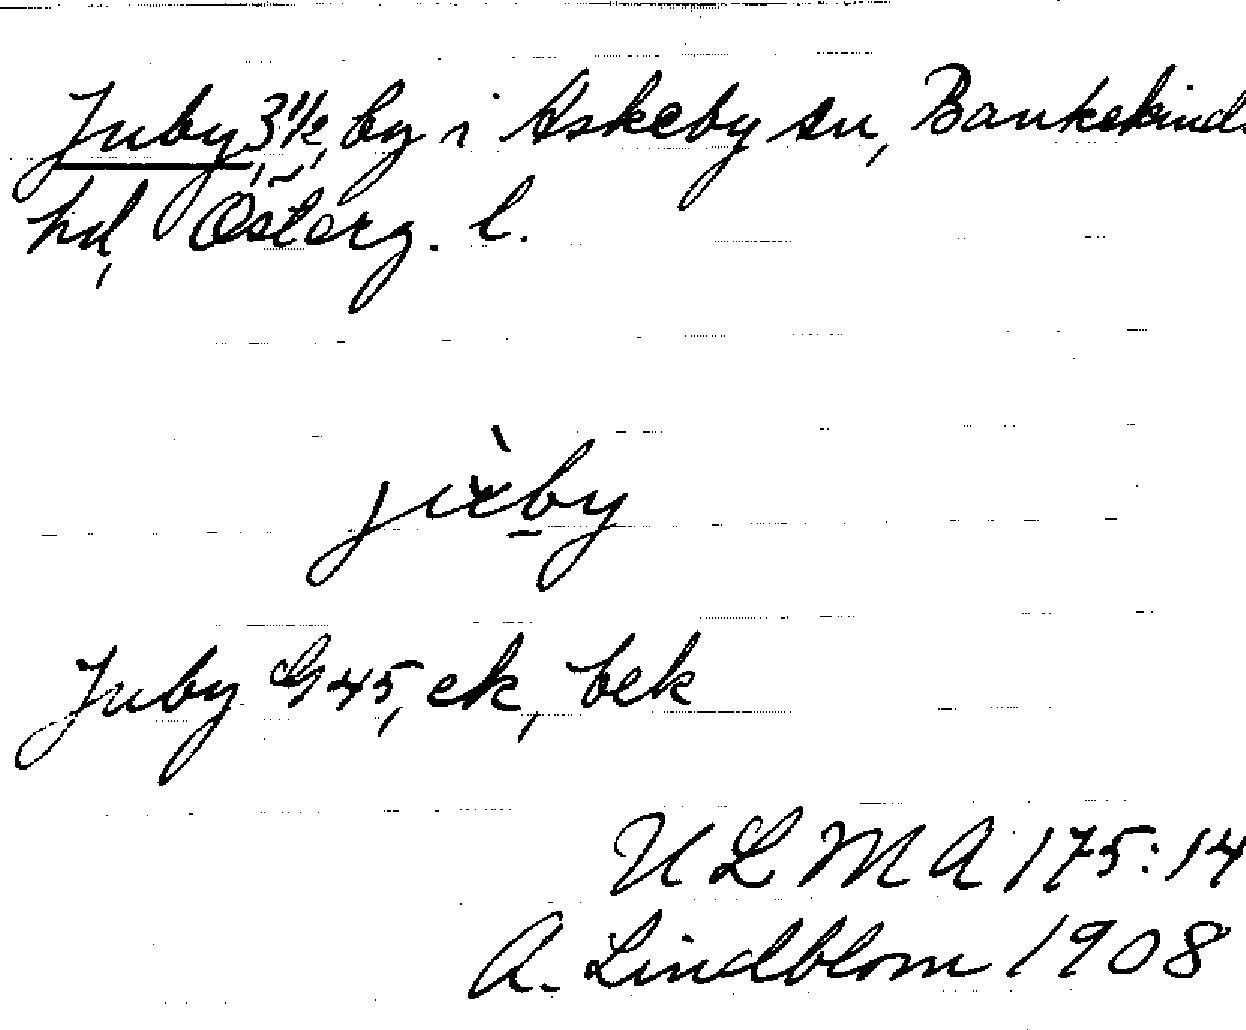 Juby 3 1/2, by i Askeby sn, Bankekinds
hd, Österg. l.
jùby
Juby G 45, ek, bek
ULMA 175:14
A. Lindblom 1908